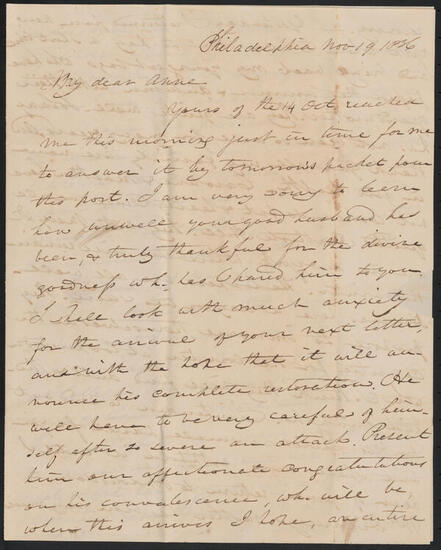 Philadelphia Nov 19, 1836
My dear Anne
Yours of the 14 Oct reached
me this morning just in time for me
to answer it by tomorrow's packet from
this port. I am very sorry to learn
how unwell your good husband has
been, & truly thankful for the divine
goodness wh. has spared him to you.
I shall look with much anxiety
for the arrival of your next letter,
and with the hope that it will an-
nounce his complete restoration. He
will have to be very careful of him-
self after so severe an attack. Present
him our affectionate congratulations
on his convalescence, wh. will be,
when this arrives I hope, an entire